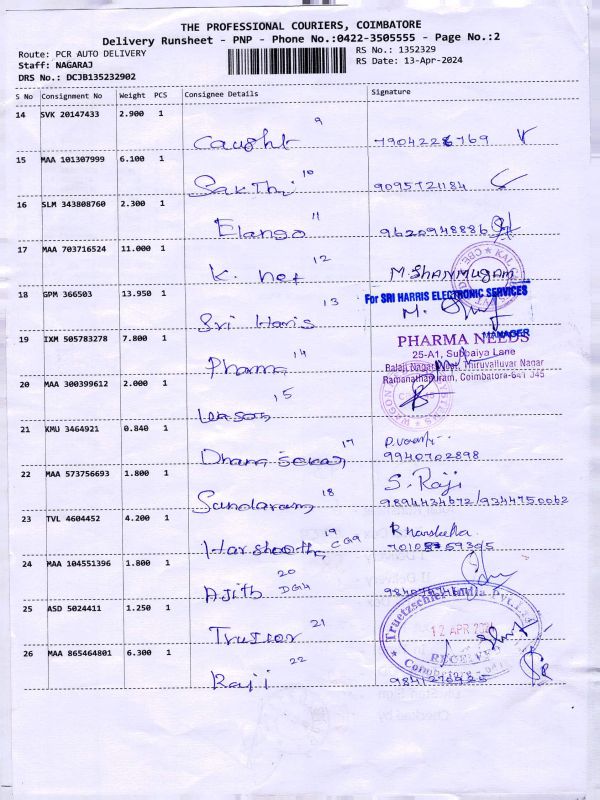 THE PROFESSIONAL COURIERS, COIMBATORE
Delivery Runsheet - PNP - Phone No.:0422-3505555 - Page No.:2
Route: PCR AUTO DELIVERY
RS No.: 1352329
Staff: NAGARAJ
RS Date: 13-Apr-2024
DRS No.: DCJB135232902
S No Consignment No Weight PCS Consignee Details Signature
14 SVK 20147433 2.900 1
9
Caught 7904226769
15 MAA 101307999 6.100 1
10
Sakthi 9095721184
16 SLM 343808760 2.300 1
11
Elango 9620948886
17 MAA 703716524 11.000 1
12
K. net M. SHANMUGAM
18 GPM 366503 13.950 1
For SRI HARRIS ELECTRONIC SERVICES
13
Sri Haris
MANAGER
19 IXM 505783278 7.800 1
PHARMA NEEDS
25-A1, Subbaiya Lane
14
Pharma Balaji Nagar West, Thiruvalluvar Nagar
Ramanathapuram, Coimbatore-641 045
20 MAA 300399612 2.000 1
15
21 KMU 3464921 0.840 1
17
Dhana Sekar 9940702898
22 MAA 573756693 1.800 1
S. Raji
18
Sundaram 9894434672/9344750062
23 TVL 4604452 4.200 1
19
24 MAA 104551396 1.800 1
20
Ajith
25 ASD 5024411 1.250 1
Truetzschler India Pvt. Ltd.
21
12 APR 2024
RECEIVED
26 MAA 865464801 6.300 1
22
Raji 9841270925